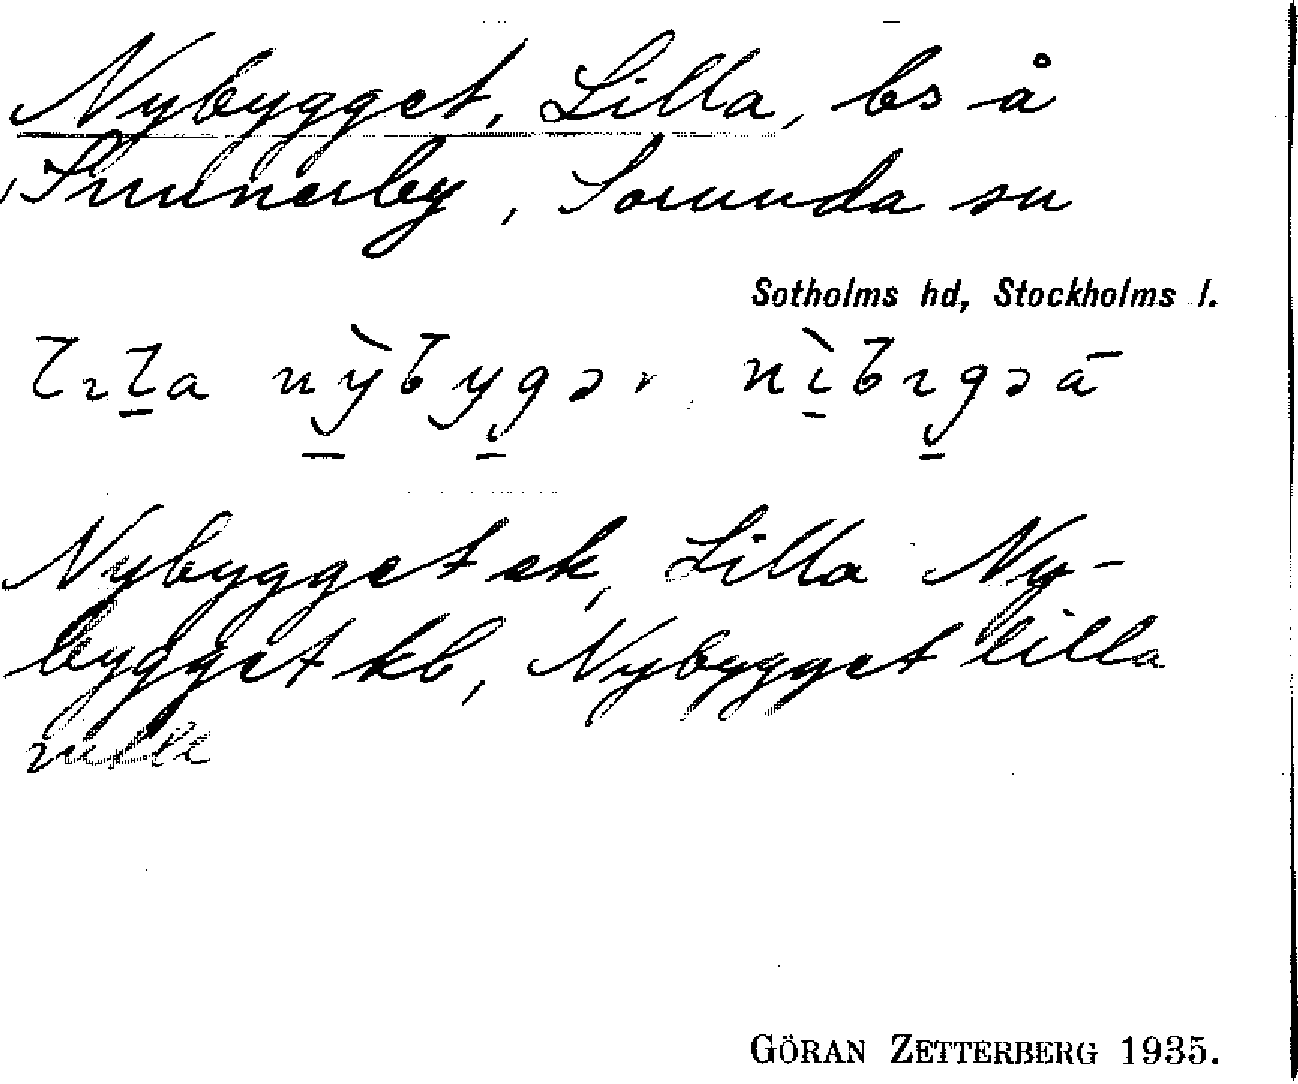 Nybygget, Lilla, bs å
Frunnerby, Sorunda sn
Sotholms hd, Stockholms l.
Nybygget ek, Lilla Ny-
bygget kb, Nybygget lilla
GÖRAN ZETTERBERG 1935.